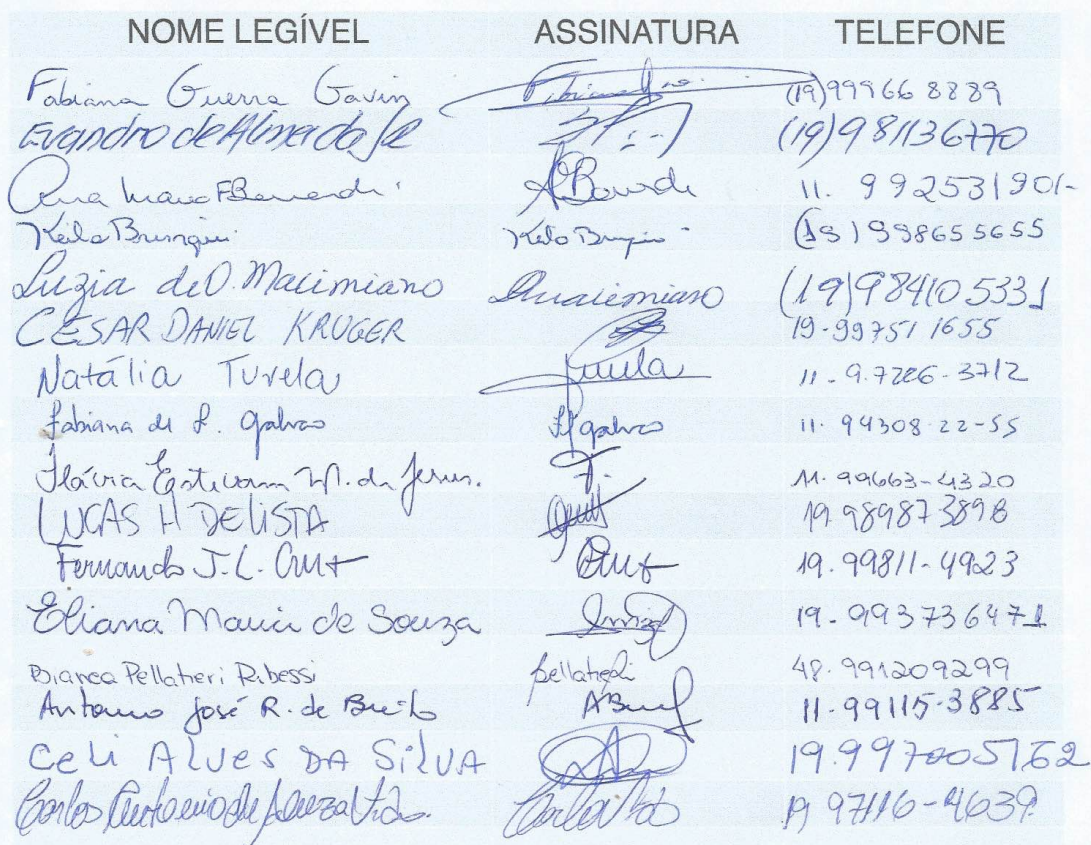 NOME LEGÍVEL ASSINATURA TELEFONE
Fabiana Guerra Gavin (19)99966 8889
Evandro de Almeida Jr (19)981136770
Ana Maria F. 11. 992531901-
Keila Bringui (19)998655655
Luzia de O. Macimiano Macimiano (19)984105331
CESAR DANIEL KRUGER 19-99751 1655
Natália Turela Turela 11-9.7226-3712
Fabiana de F. Galvao Galvao 11. 94308-22-55
Flávia Estevam M. de Jesus. F. 11. 99663-4320
LUCAS H DELISTA 19 989873898
Fernando J. L. Cruz Cruz 19. 99811-4923
Eliana Maria de Souza 19-993736471
Bianca Pellatieri Ribessi Pellatieri 48. 991209299
Antonio José R. de Brito 11-99115-3885
CELI ALVES DA SILVA 19.997005762
Carlos Antonio de Souza 19 97116-4639